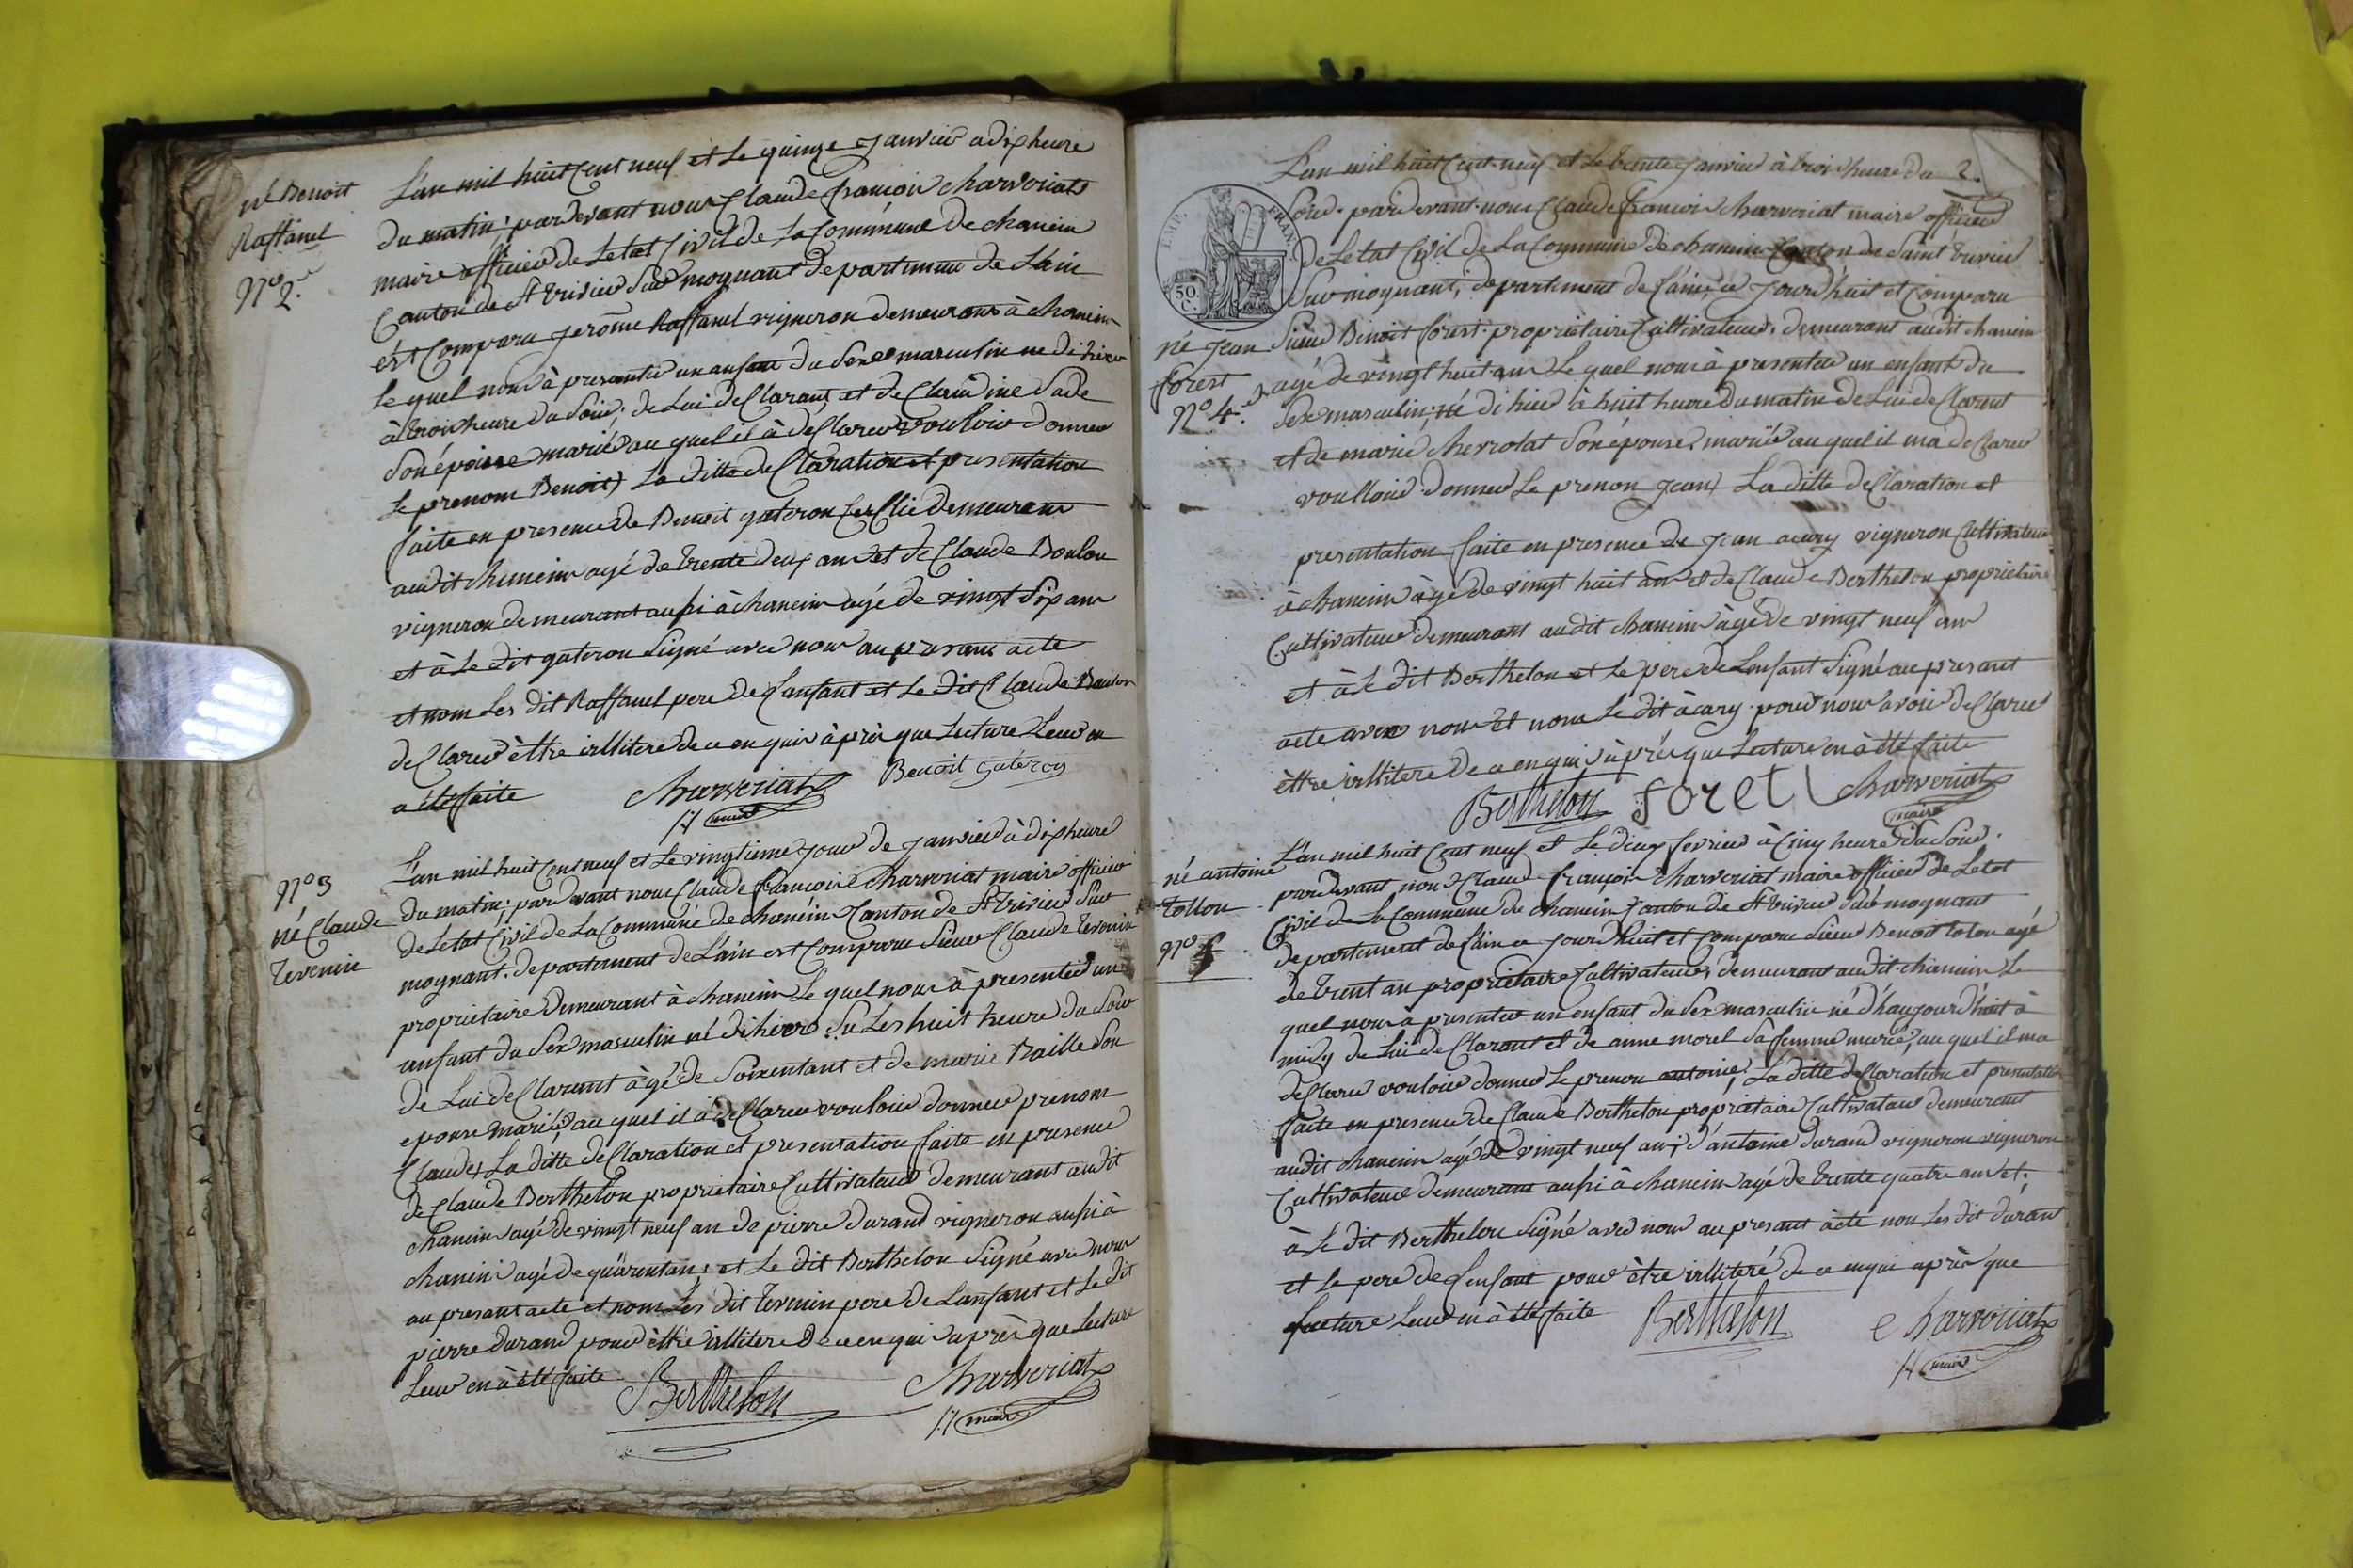 né Benoit
Raffanel
N° 2.
L'an mil huit Cent neuf et Le quinze Janvier a dix heure
du matin; pardevant nous Claude françois charveriat
maire officier de Letat Civil de La Commune de chanein
Canton de St trivier Sur mognant departement de L'ain
ést Comparu jerome Raffanel vigneron demeurant à chanein
Le quel nous à presentée un anfant du Sexe masculin ne di hier
à trois heure du Soir; de Lui deClarant et de Claudine Sade
Son épouse mariée au quel il à deClarer vouloir donner
Le prenom Benoit) La ditte deClaration et presentation
faite en presence de Benoit gateron demeurant
audit chanein agé de trente deux ans et de Claude Boulon
vigneron demeurant aussi à chanein agé de vingt Six ans
et à Le dit gateron Signé avec nous au presant acte
et nom Les dit Raffanel pere de Lanfant et Le dit Claude Boulon
deClarer èttre illitere de ce en quis àprès que Lecture Leur en
a été faite
charveriat
maire
Benoit gateron
N° 3
né Claude
Tevenin
L'an mil huit Cent neuf et Le vingtieme jour de janvier à dix heure
du matin; par devant nous Claude françois Charveriat maire officier
de Létat Civil de La Commune de chanéin Canton de St trivier Sur
mognant. departement de L'ain est Comparu Sieur Claude Tevenin
proprietaire demeurant à chanein Le quel nous à presentée un
anfant du Sex masculin né di hier Su Les huit heure du Soir
de Lui deClarant àgé de Soixentans et de marie Baille Son
epouse mariée au quel il à deClarer vouloir donner prenom
Claude) La ditte deClaration et presentation faite en presence
de Claude Berthelon proprietaire Cultivateur demeurant audit
chanein agé de vingt neuf an de pierre durand vigneron aussi à
chanein agé de quarentans; et Le dit Berthelon Signé avec nous
au presant acte et nom Les dit tevenin pere de Lanfant et Le dit
pierre durand pour èttre illitere de ce en qui après que Lecture
Leur en à été faite
Berthelon
Charveriat
maire
2.
L'an mil huit Cent neuf et Le trente janvier à trois heure du
Soir. par devant nous Claude françois charveriat maire officier
de Letat Civil de La Commune de chanein Canton de Saint trivier
Sur mognant, departiment de L'ain, ce jourd'huit et Comparu
né jean
forest
N° 4.
Sieur Benoit forest proprietaire Cultivateur demeurant audit chanein
agé de vingt huit ans Le quel nous à presentée un enfant du
Sex masculin; né di hier à huit heure du matin de Lui deClarant
et de marie cherrolat Son épouse mariée au quel il ma deClarer
voulloir donner Le prenon jean) La ditte deClaration et
presentation faite en presence de jean acary vigneron Cultivateur
à chanein àgé de vingt huit ans et de Claude Berthelon proprietaire
Cultivateur demeurant audit chanein àgé de vingt neuf ans
et à Le dit Berthelon et Le pere de Lenfant Signé au presant
acte avec nous et nom Le dit acary pour nous avoir deClarer
èttre illitere de ce en qui àprés que Lecture en à été faite
Berthelon foret charveriat
maire
né antoine
tollon
N° 5
L'an mil huit Cent neuf et Le deux fevrier à Cinq heure du Soir.
par devant nous Claude françois charveriat maire officier de Letat
Civil de La Commune de chanein Canton de St trivier Sur mognant
departement de L'ain ce jourd'huit et Comparu Sieur Benoit tolon agé
de trent an proprietaire Cultivateur demeurant audit chanein Le
quel nous à presenter un enfant du Sex masculin né d'haujourd'huit à
midy de Lui deClarant et de anne morel Sa femme marié, au quel il ma
deClarer vouloir donner Le prenon antoine; La ditte deClaration et presentation
faite en presence de Claude Berthelon propriétaire Cultivateur demeurant
audit chanein agé de vingt neuf ans; d'antoine durand vigneron vigneron
Cultivateur demeurant aussi à chanein agé de trente quatre ans et.
à Le dit Berthelon Signé avec nous au presant àcte non Les dit durand
et Le pere de Lenfant pour ètre illiteré de ce enqui après que
Lecture Leur en à été faite
Berthelon
charveriat
maire